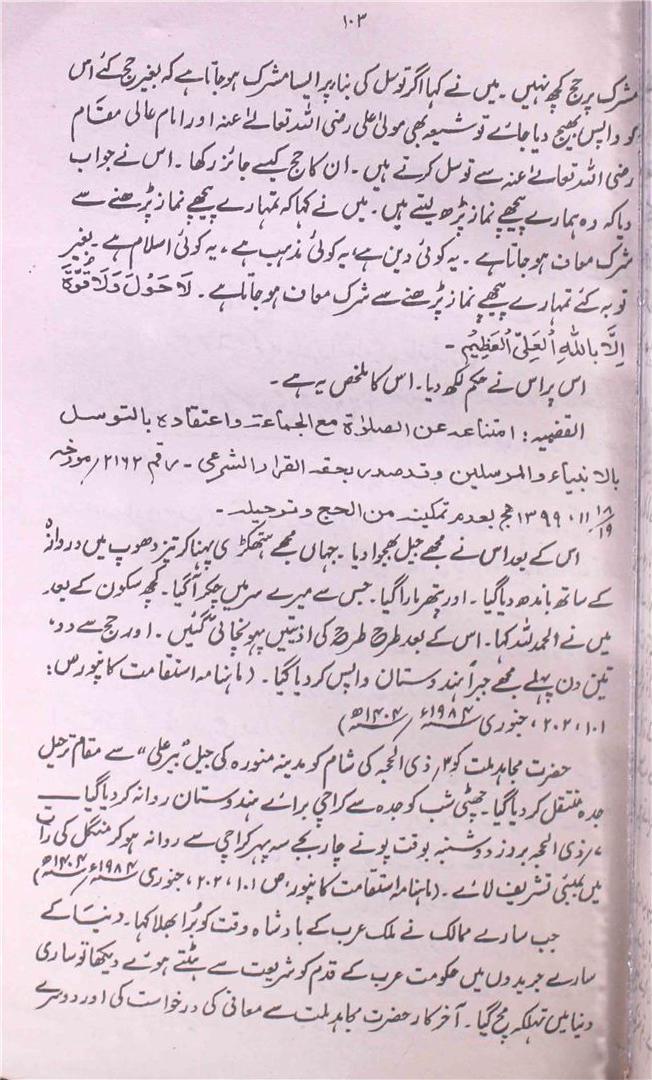 ۱۰۳
مشرک پر حج کچھ نہیں۔ میں نے کہا اگر توسل کی بناء پر ایسا مشرک ہوجاتا ہے کہ بغیر حج کئے اس
کو واپس بھیج دیا جائے تو شیعہ بھی مولیٰ علی رضی اللہ تعالےٰ عنہ اور امام عالی مقام
رضی اللہ تعالےٰ عنہ سے توسل کرتے ہیں۔ ان کا حج کیسے جائز رکھا۔ اس نے جواب
دیا کہ وہ ہمارے پیچھے نماز پڑھ لیتے ہیں۔ میں نے کہا کہ تمہارے پیچھے نماز پڑھنے سے
شرک معاف ہوجاتا ہے۔ یہ کوئی دین ہے، یہ کوئی مذہب ہے، یہ کوئی اسلام ہے۔ بغیر
توبہ کئے تمہارے پیچھے نماز پڑھنے سے شرک معاف ہوجاتا ہے۔ لَاحَوْلَ وَلَاقُوَّةَ
اِلَّا بِاللهِ الْعَلِیِّ الْعَظِیْمِ۔
اس پر اس نے حکم لکھ دیا۔ اس کا ملخص یہ ہے۔
القضیہ: امتناعہ عن الصلاة مع الجماعة واعتقادہ بالتوسل
بالانبیاء والمرسلین وقد صدر بحقہ القرار الشرعی۔ رقم ۲۱۶۲/ مورخہ
۱۸/۱۹ ۔۱۱۔ ۱۳۹۹ھج بعدم تمکینہ من الحج وترحیلہ۔
اس کے بعد اس نے مجھے جیل بھجوا دیا۔ جہاں مجھے ہتھکڑی پہنا کر تیز دھوپ میں دروازہ
کے ساتھ باندھ دیا گیا۔ اور پتھر مارا گیا۔ جس سے میرے سر میں چکر آگیا۔ کچھ سکون کے بعد
میں نے الحمدللہ کہا۔ اس کے بعد طرح طرح کی اذیتیں پہونچائی گئیں۔ اور حج سے دو،
تین دن پہلے مجھے جبراً ہندوستان واپس کر دیا گیا۔ (ماہنامہ استقامت کانپور ص:
۱۰۱، ۲۰۲، جنوری ۱۹۸۴ء/ ۱۴۰۴ھ)
حضرت مجاہد ملت کو ۳/ ذی الحجہ کی شام کو مدینہ منورہ کی جیل "بیر علی" سے مقام ترحیل
جدہ منتقل کر دیا گیا۔ چھٹی شب کو جدہ سے کراچی برائے ہندوستان روانہ کر دیا گیا۔
۷/ ذی الحجہ بروز دوشنبہ بوقت پونے چار بجے سہ پہر کراچی سے روانہ ہو کر منگل کی رات
میں بمبئی تشریف لائے۔ (ماہنامہ استقامت کانپور، ص ۱۰۱، ۲۰۲، جنوری ۱۹۸۴ء/ ۱۴۰۴ھ)
جب سارے ممالک نے ملک عرب کے بادشاہ وقت کو بُرا بھلا کہا۔ دنیا کے
سارے جریدوں میں حکومت عرب کے قدم کو شریعت سے ہٹتے ہوئے دیکھا تو ساری
دنیا میں تہلکہ مچ گیا۔ آخر کار حضرت مجاہد ملت سے معافی کی درخواست کی اور دوسرے